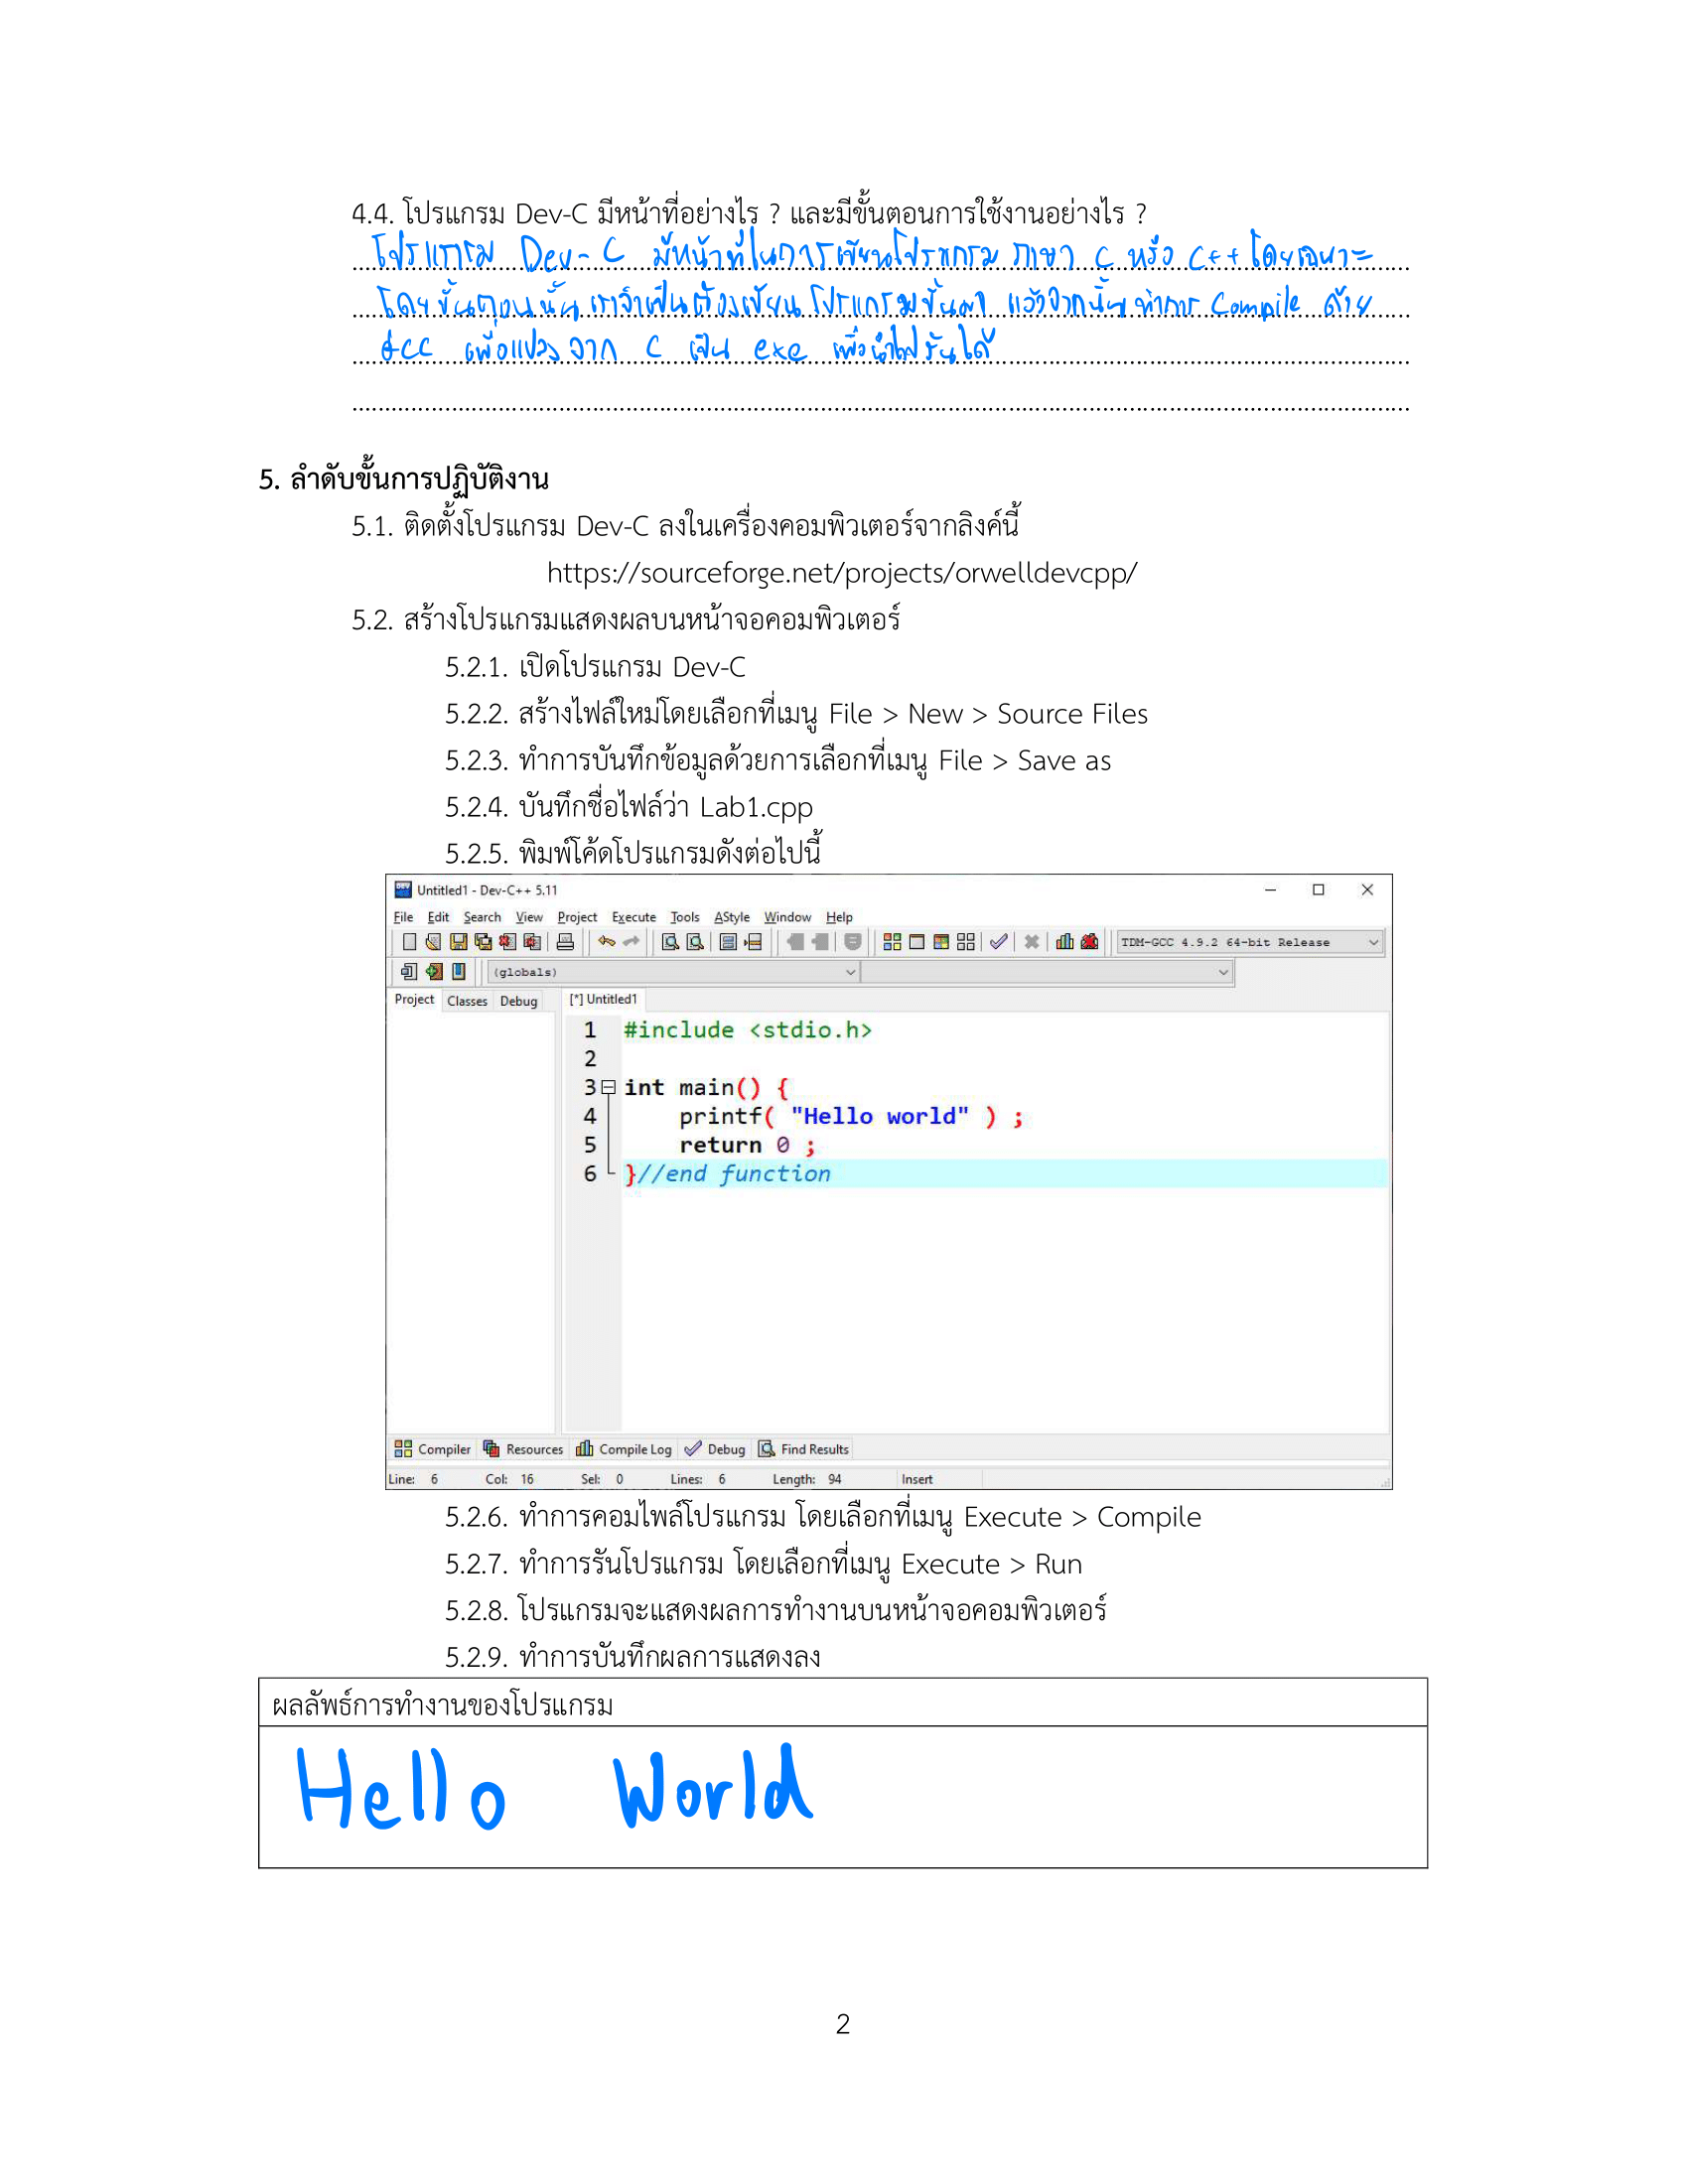 4.4. โปรแกรม Dev-C มีหน้าที่อย่างไร ? และมีขั้นตอนการใช้งานอย่างไร ?
โปรแกรม Dev-C มีหน้าที่ในการเขียนโปรแกรม ภาษา C หรือ C++ โดยเฉพาะ
โดยขั้นตอนนั้น เราจำเป็นต้องเขียน โปรแกรมขึ้นมา แล้วจากนั้น ทำการ Compile ด้วย
GCC เพื่อแปลง จาก C เป็น exe เพื่อนำไปรันได้
5. ลำดับขั้นการปฏิบัติงาน
5.1. ติดตั้งโปรแกรม Dev-C ลงในเครื่องคอมพิวเตอร์จากลิงค์นี้
https://sourceforge.net/projects/orwelldevcpp/
5.2. สร้างโปรแกรมแสดงผลบนหน้าจอคอมพิวเตอร์
5.2.1. เปิดโปรแกรม Dev-C
5.2.2. สร้างไฟล์ใหม่โดยเลือกที่เมนู File > New > Source Files
5.2.3. ทำการบันทึกข้อมูลด้วยการเลือกที่เมนู File > Save as
5.2.4. บันทึกชื่อไฟล์ว่า Lab1.cpp
5.2.5. พิมพ์โค้ดโปรแกรมดังต่อไปนี้
Untitled1 - Dev-C++ 5.11
File Edit Search View Project Execute Tools AStyle Window Help
TDM-GCC 4.9.2 64-bit Release
(globals)
Project Classes Debug [*] Untitled1
1 #include <stdio.h>
2
3 int main() {
4 printf( "Hello world" ) ;
5 return 0 ;
6 }//end function
Compiler Resources Compile Log Debug Find Results
Line: 6 Col: 16 Sel: 0 Lines: 6 Length: 94 Insert
5.2.6. ทำการคอมไพล์โปรแกรม โดยเลือกที่เมนู Execute > Compile
5.2.7. ทำการรันโปรแกรม โดยเลือกที่เมนู Execute > Run
5.2.8. โปรแกรมจะแสดงผลการทำงานบนหน้าจอคอมพิวเตอร์
5.2.9. ทำการบันทึกผลการแสดงลง
ผลลัพธ์การทำงานของโปรแกรม
Hello World
2